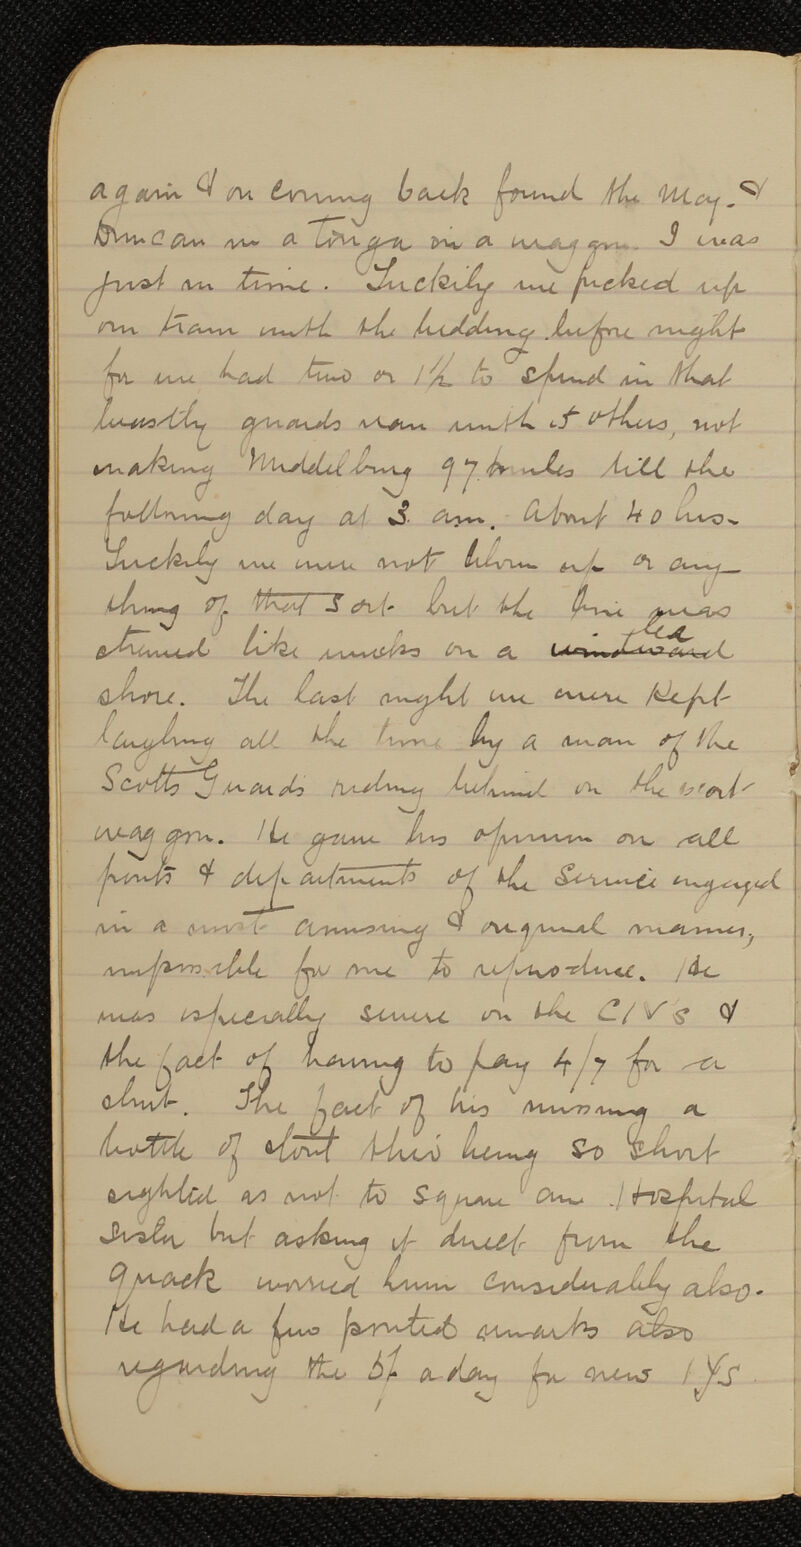 again & on coming back found the Maj. &
Duncan in a Tonga on a waggon. I was
just in time. Luckily we picked up
our train with the bedding before night
for we had two or 1½ to spend in that
beastly guards van with 5 others, not
making Middelburg 97 miles till the
following day at 3 am. About 40 hrs.
Luckily we were not blown up or any
thing of that sort but the line was
strewed like wrecks on a ~~windward~~ lea
shore. The last night we were kept
laughing all the time by a man of the
Scotts Guards riding behind on the
waggon. He gave his opinion on all
points & departments of the Service engaged
in a most amusing & original manner,
impossible for me to reproduce. He
was especially severe on the CIV's &
the fact of having to pay 4/7 for a
shirt. The fact of his missing a
bottle of stout thro' being so short
sighted as not to square one Hospital
Sister but asking it direct from the
quack worried him considerably also.
He had a few pointed remarks also
regarding the 5/- a day for new IYS